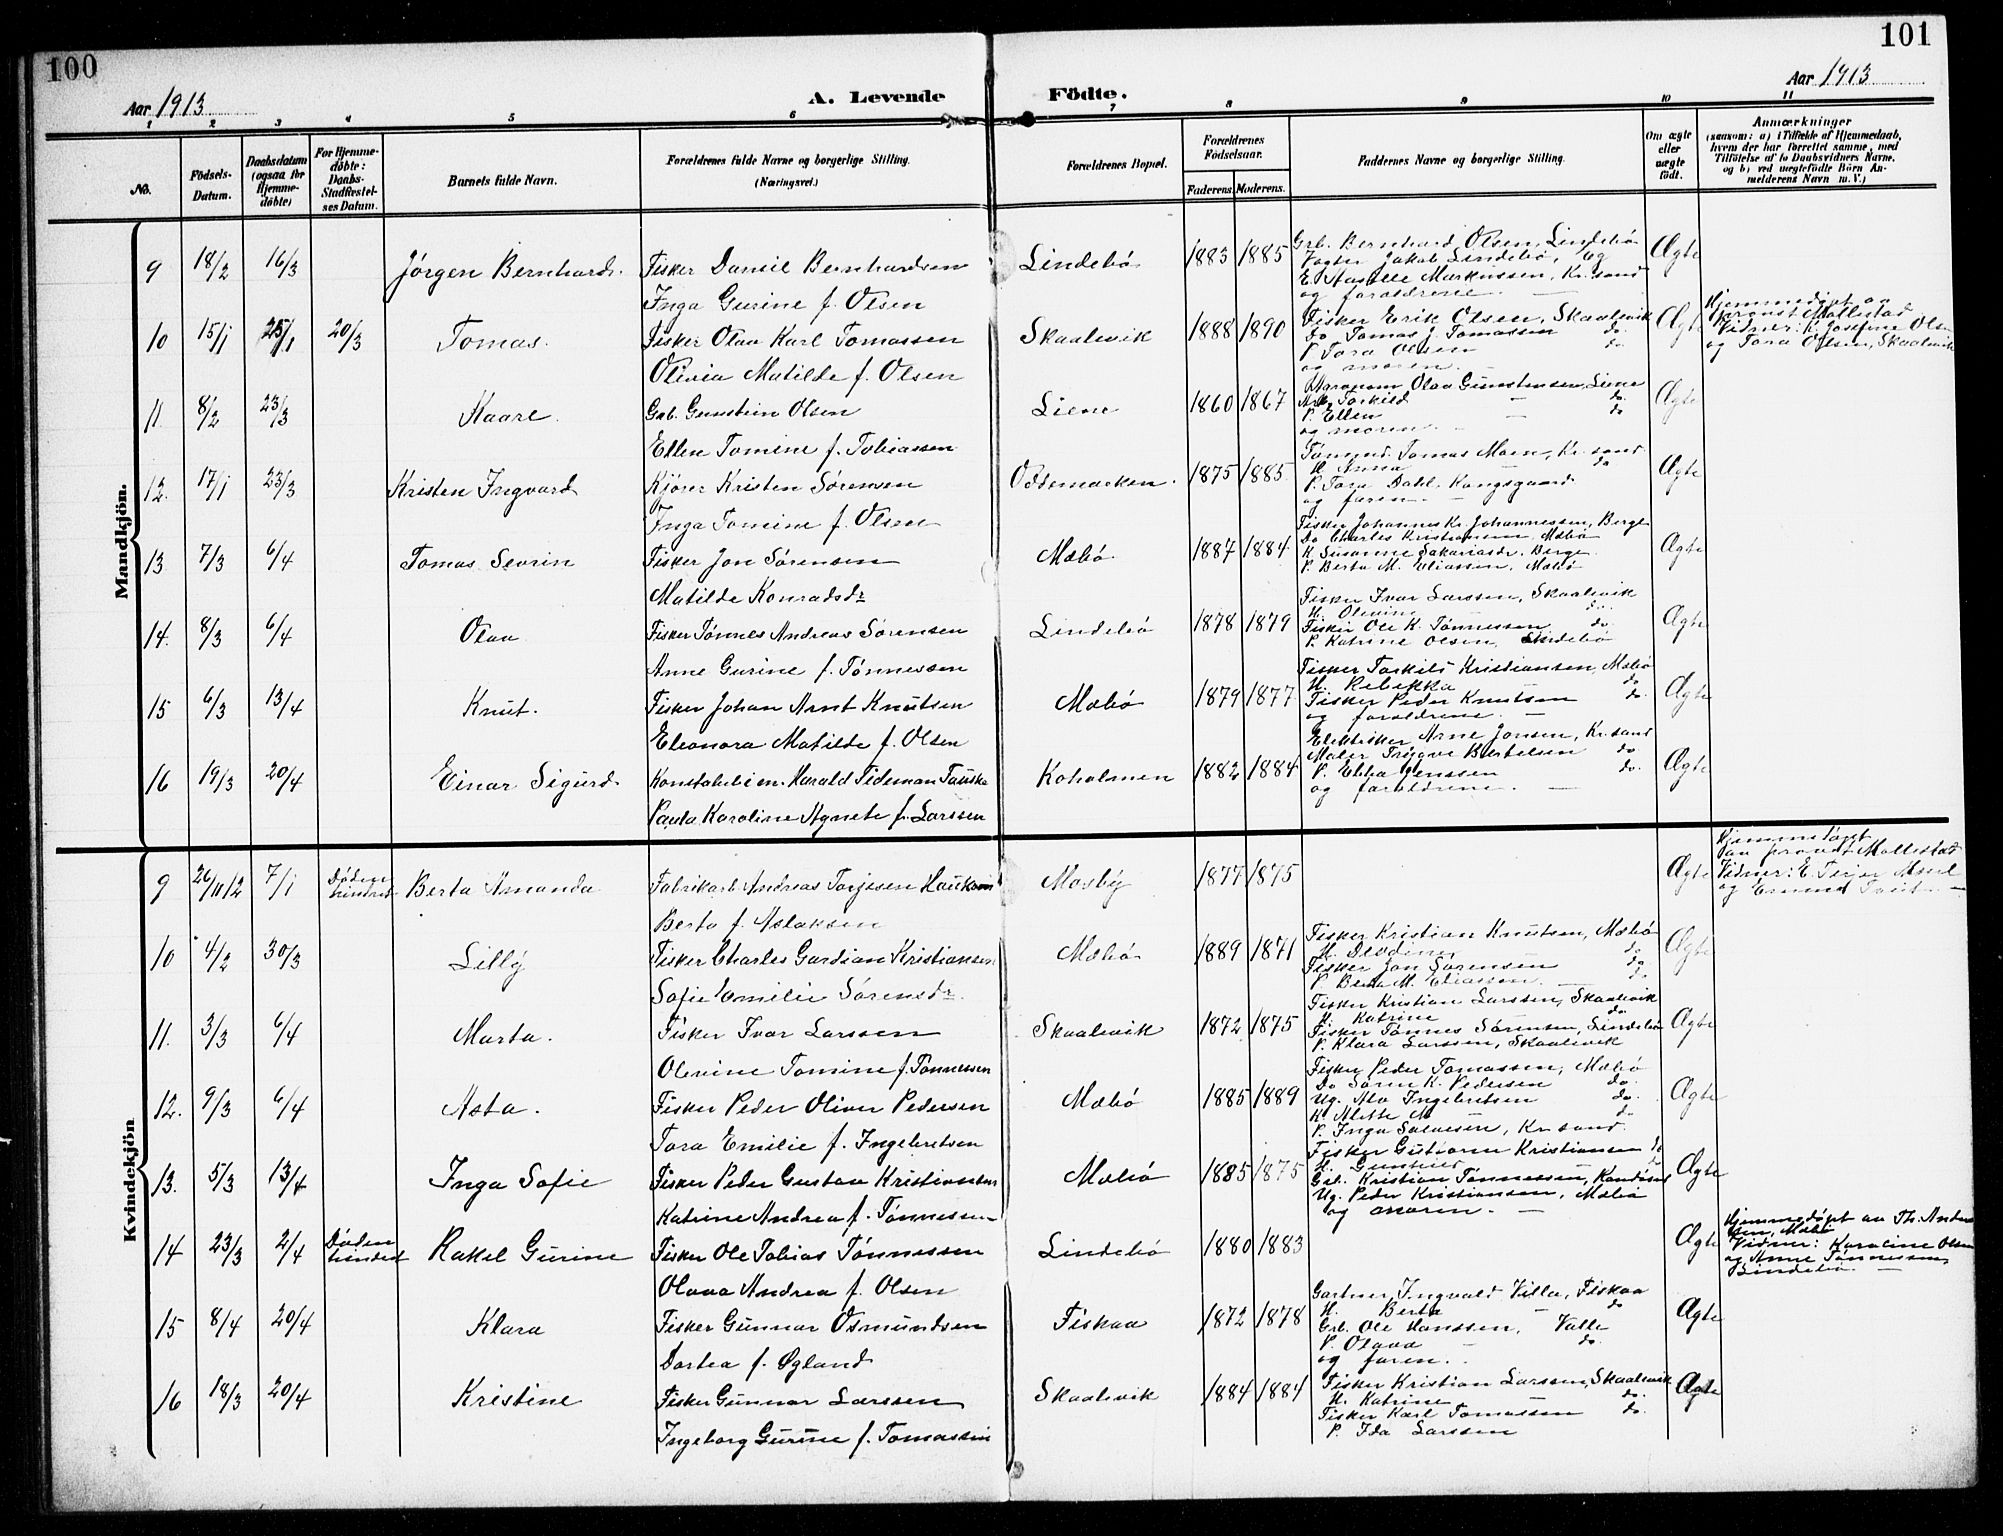 100
101
Aar 1913
A. Levende Födte.
Aar 1913
1 2 3 4 5 6 7 8 9 10 11
No.
Födsels-Datum.
Daabsdatum (ogsaa for Hjemme-döbte)
For Hjemme-döbte: Daabs-Stadfæstel-ses Datum.
Barnets fulde Navn.
Forældrenes fulde Navne og borgerlige Stilling. (Næringsvei.)
Forældrenes Bopæl.
Forældrenes Födselsaar.
Faderens. Moderens.
Faddernes Navne og borgerlige Stilling.
Om ægte eller uægte födt.
Anmærkninger
(saasom: a) i Tilfælde af Hjemmedaab, hvem der har forrettet samme, med Tilföielse af to Daabsvidners Navne, og b) ved uægtefödte Börn Anmelderens Navn m. V.)
Mandkjön.
9 18/2 16/3 Jørgen Bernhard. Fisker Daniel Bernhardsen Lindebø 1883 1885 Grb. Bernhard Olsen, Lindebø Ægte
Inga Gurine f. Olsen
Jakob Lindebø,
Markussen, Kr.sand
og forældrene.
10 15/1 25/1 20/3 Tomas. Fisker Olav Karl Tomassen Skaalevik 1888 1890 Fisker Erik Olsen, Skaalevik Ægte Hjemmedøpt av
Olivia Matilde f. Olsen
Do Tomas J. Tomassen do
P. Tora Olsen do
og moren.
provst Mollestad
Vidner: K. Josefine Olsen
og Tora Olsen, Skaalevik
11 8/2 23/3 Kaare. Grb. Gunstein Olsen Liene 1860 1867 Olav Gunsteinsen, Liene Ægte
Ellen Tomine f. Tobiassen
Torkild do
P. Ellen do
og moren.
12. 17/1 23/3 Kristen Ingvard Kjører Kristen Sørensen Oddemarken. 1875 1885 Tømmd. Tomas Moen, Kr.sand Ægte
Inga Tomine f. Olsen
H. Anna do
P. Tora Dahl, Kongsgaard
og faren.
13 7/3 6/4 Tomas Sevrin Fisker Jon Sørensen Mæbø 1887 1884 Fisker Johannes Kr. Johannessen, Berge Ægte
Matilde Konradsdr
Do Charles Kristiansen, Mæbø
K. Susanne Sakariasdr. Berge
P. Berta M. Eliassen, Mæbø
14. 8/3 6/4 Olav Fisker Tønnes Andreas Sørensen Lindebø 1878 1879 Fisker Ivar Larssen, Skaalevik Ægte
Anne Gurine f. Tønnessen
H. Olevine do.
Fisker Ole K. Tønnessen do.
P. Katrine Olsen, Lindebø
15 6/3 13/4 Knut. Fisker Johan Arnt Knutsen Mæbø 1879 1877 Fisker Torkild Kristiansen, Mæbø Ægte
Eleonora Matilde f. Olsen
H. Rebekka do
Fisker Peder Knutsen do.
og forældrene.
16 19/3 20/4 Einar Sigurd Harald Tideman Koholmen 1882 1884 Elektriker Arne Jensen, Kr.sand Ægte
Paula Karoline Agnete f. Larssen
Maler Trygve Bertelsen do
P. Ebba Jenssen do.
og forældrene.
Kvindekjön
9 26/11 12 7/1 Døden hindret Berta Amanda Fabrikarb. Andreas Torjesen Mosby 1877 1875 Ægte Hjemmedøpt
Berta f. Aslaksen
av provst Mollestad
Vidner: E.
og Emma
10 4/2 30/3 Lilly Fisker Charles Gardian Kristiansen Mæbø 1889 1871 Fisker Kristian Knutsen, Mæbø Ægte
Sofie Emilie Sørensdr.
H. do
Fisker Jon Sørensen do
P. Berta M. Eliassen. do
11. 3/3 6/4 Marta. Fisker Ivar Larssen Skaalevik 1872 1875 Fisker Kristian Larssen, Skaalevik Ægte
Olevine Tomine f. Tønnessen
H. Katrine do.
Fisker Tønnes Sørensen, Lindebø
P. Klara Larssen, Skaalevik
12. 9/3 6/4 Asta. Fisker Peder Oliver Pedersen Mæbø 1885 1889 Fisker Peder Tomassen, Mæbø Ægte
Tora Emilie f. Ingebretsen
Do Søren K. Pedersen do.
Ug. Alv Ingebretsen do.
K. Mette M do
P. Inga Salvesen, Kr.sand.
13. 5/3 13/4 Inga Sofie Fisker Peder Gustav Kristiansen Mæbø 1885 1875 Fisker Kristiansen Ægte
Katrine Andrea f. Tønnessen
H. do
Grb. Kristian Tønnessen,
Ug. Peder Kristiansen, Mæbø
og moren.
14 23/3 2/4 Døden hindret Rakel Gurine Fisker Ole Tobias Tønnessen Lindebø 1880 1883 Ægte Hjemmedøpt av Th. Andersen, Mæbø
Olava Andrea f. Olsen
Vidner: Karoline Olsen
og Anne Tønnessen,
Lindebø.
15 8/4 20/4 Klara Fisker Gunnar Osmundsen Fiskaa 1872 1878 Gartner Ingvald Villa, Fiskaa Ægte
Dortea f. Øgland
H. Berta do
Grb. Ole Hanssen, Valle
P. Olava do.
og faren.
16 18/3 20/4 Kristine Fisker Gunnar Larssen Skaalevik 1884 1884 Fisker Kristian Larssen, Skaalevik Ægte
Ingeborg Gurine f. Tomassen
H. Katrine do.
Fisker Karl Tomassen do.
P. Ida Larssen